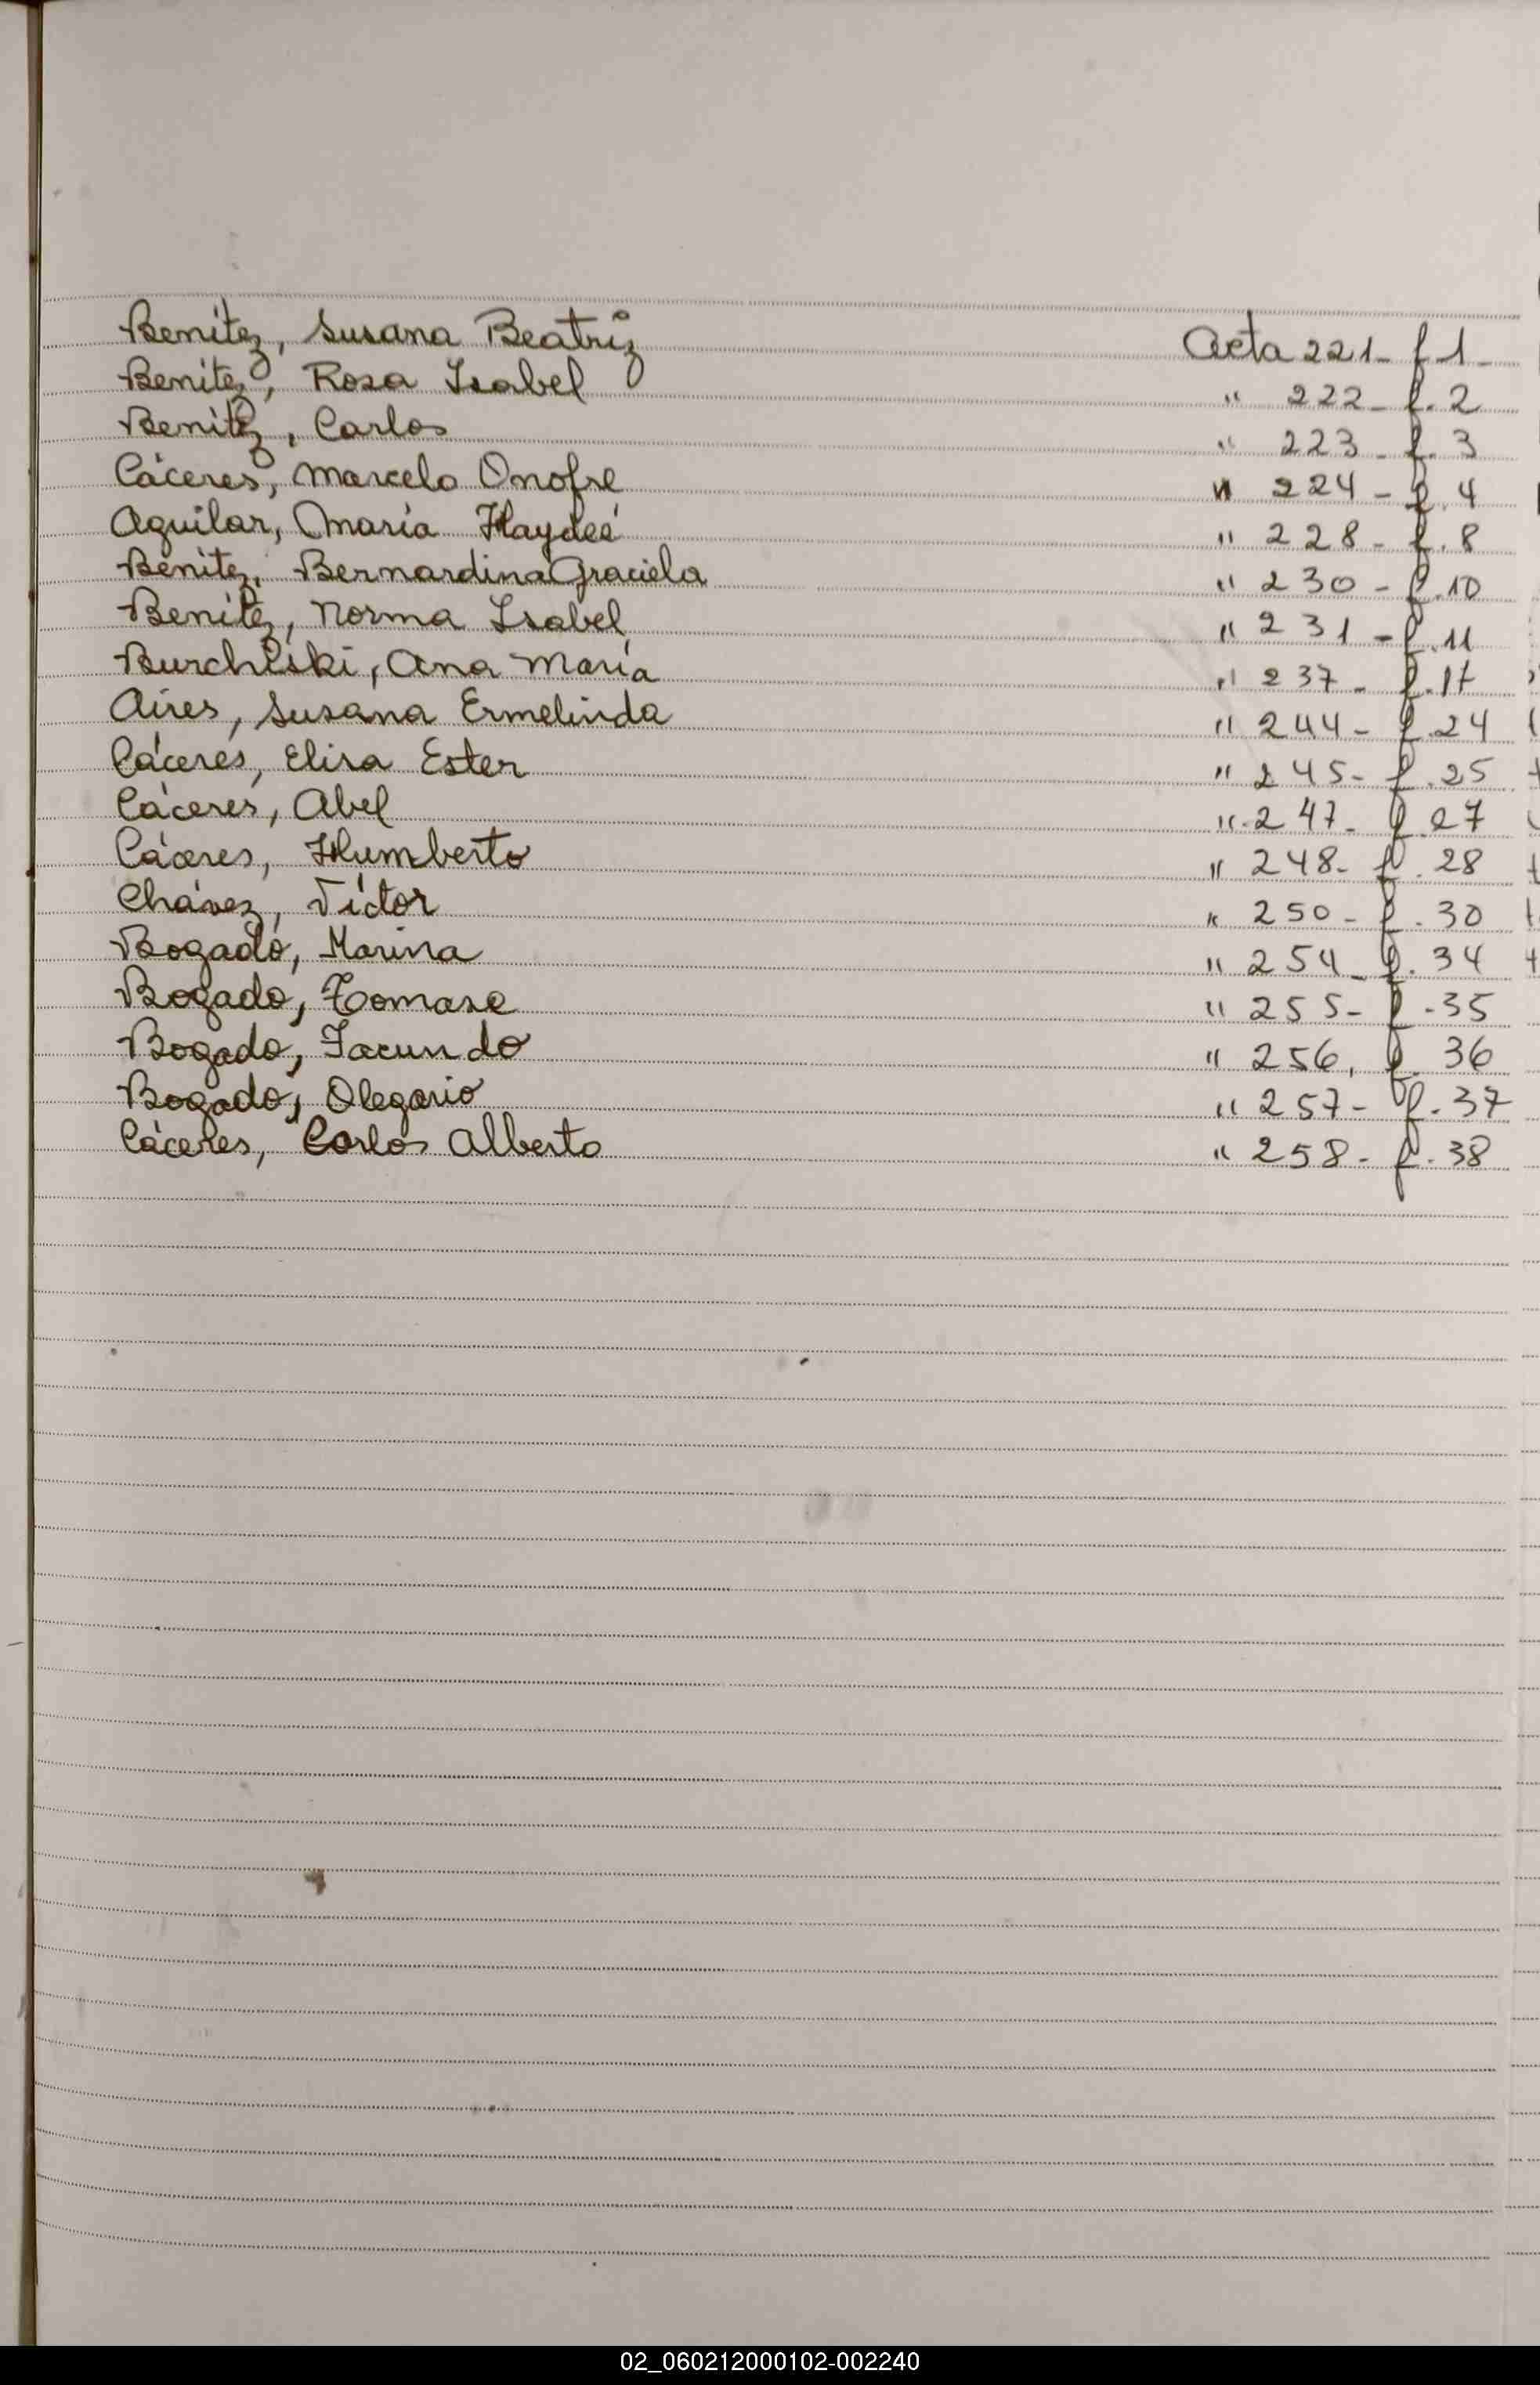 Benítez, Susana Beatriz Acta 221- f 1-
Benítez, Rosa Isabel " 222- f. 2
Benítez, Carlos " 223- f. 3
Cáceres, Marcelo Onofre " 224- f. 4
Aguilar, María Haydeé " 228- f. 8
Benítez, Bernardina Graciela " 230- f. 10
Benítez, Norma Isabel " 231- f. 11
Burchiski, Ana María " 237- f. 17
Aires, Susana Ermelinda " 244- f. 24
Cáceres, Elisa Ester " 245- f. 25
Cáceres, Abel " 247- f. 27
Cáceres, Humberto " 248- f. 28
Chávez, Víctor " 250- f. 30
Bogado, Marina " 254- f. 34
Bogado, Tomase " 255- f. 35
Bogado, Facundo " 256, f. 36
Bogado, Olegario " 257- f. 37
Cáceres, Carlos Alberto " 258- f. 38
02_060212000102-002240